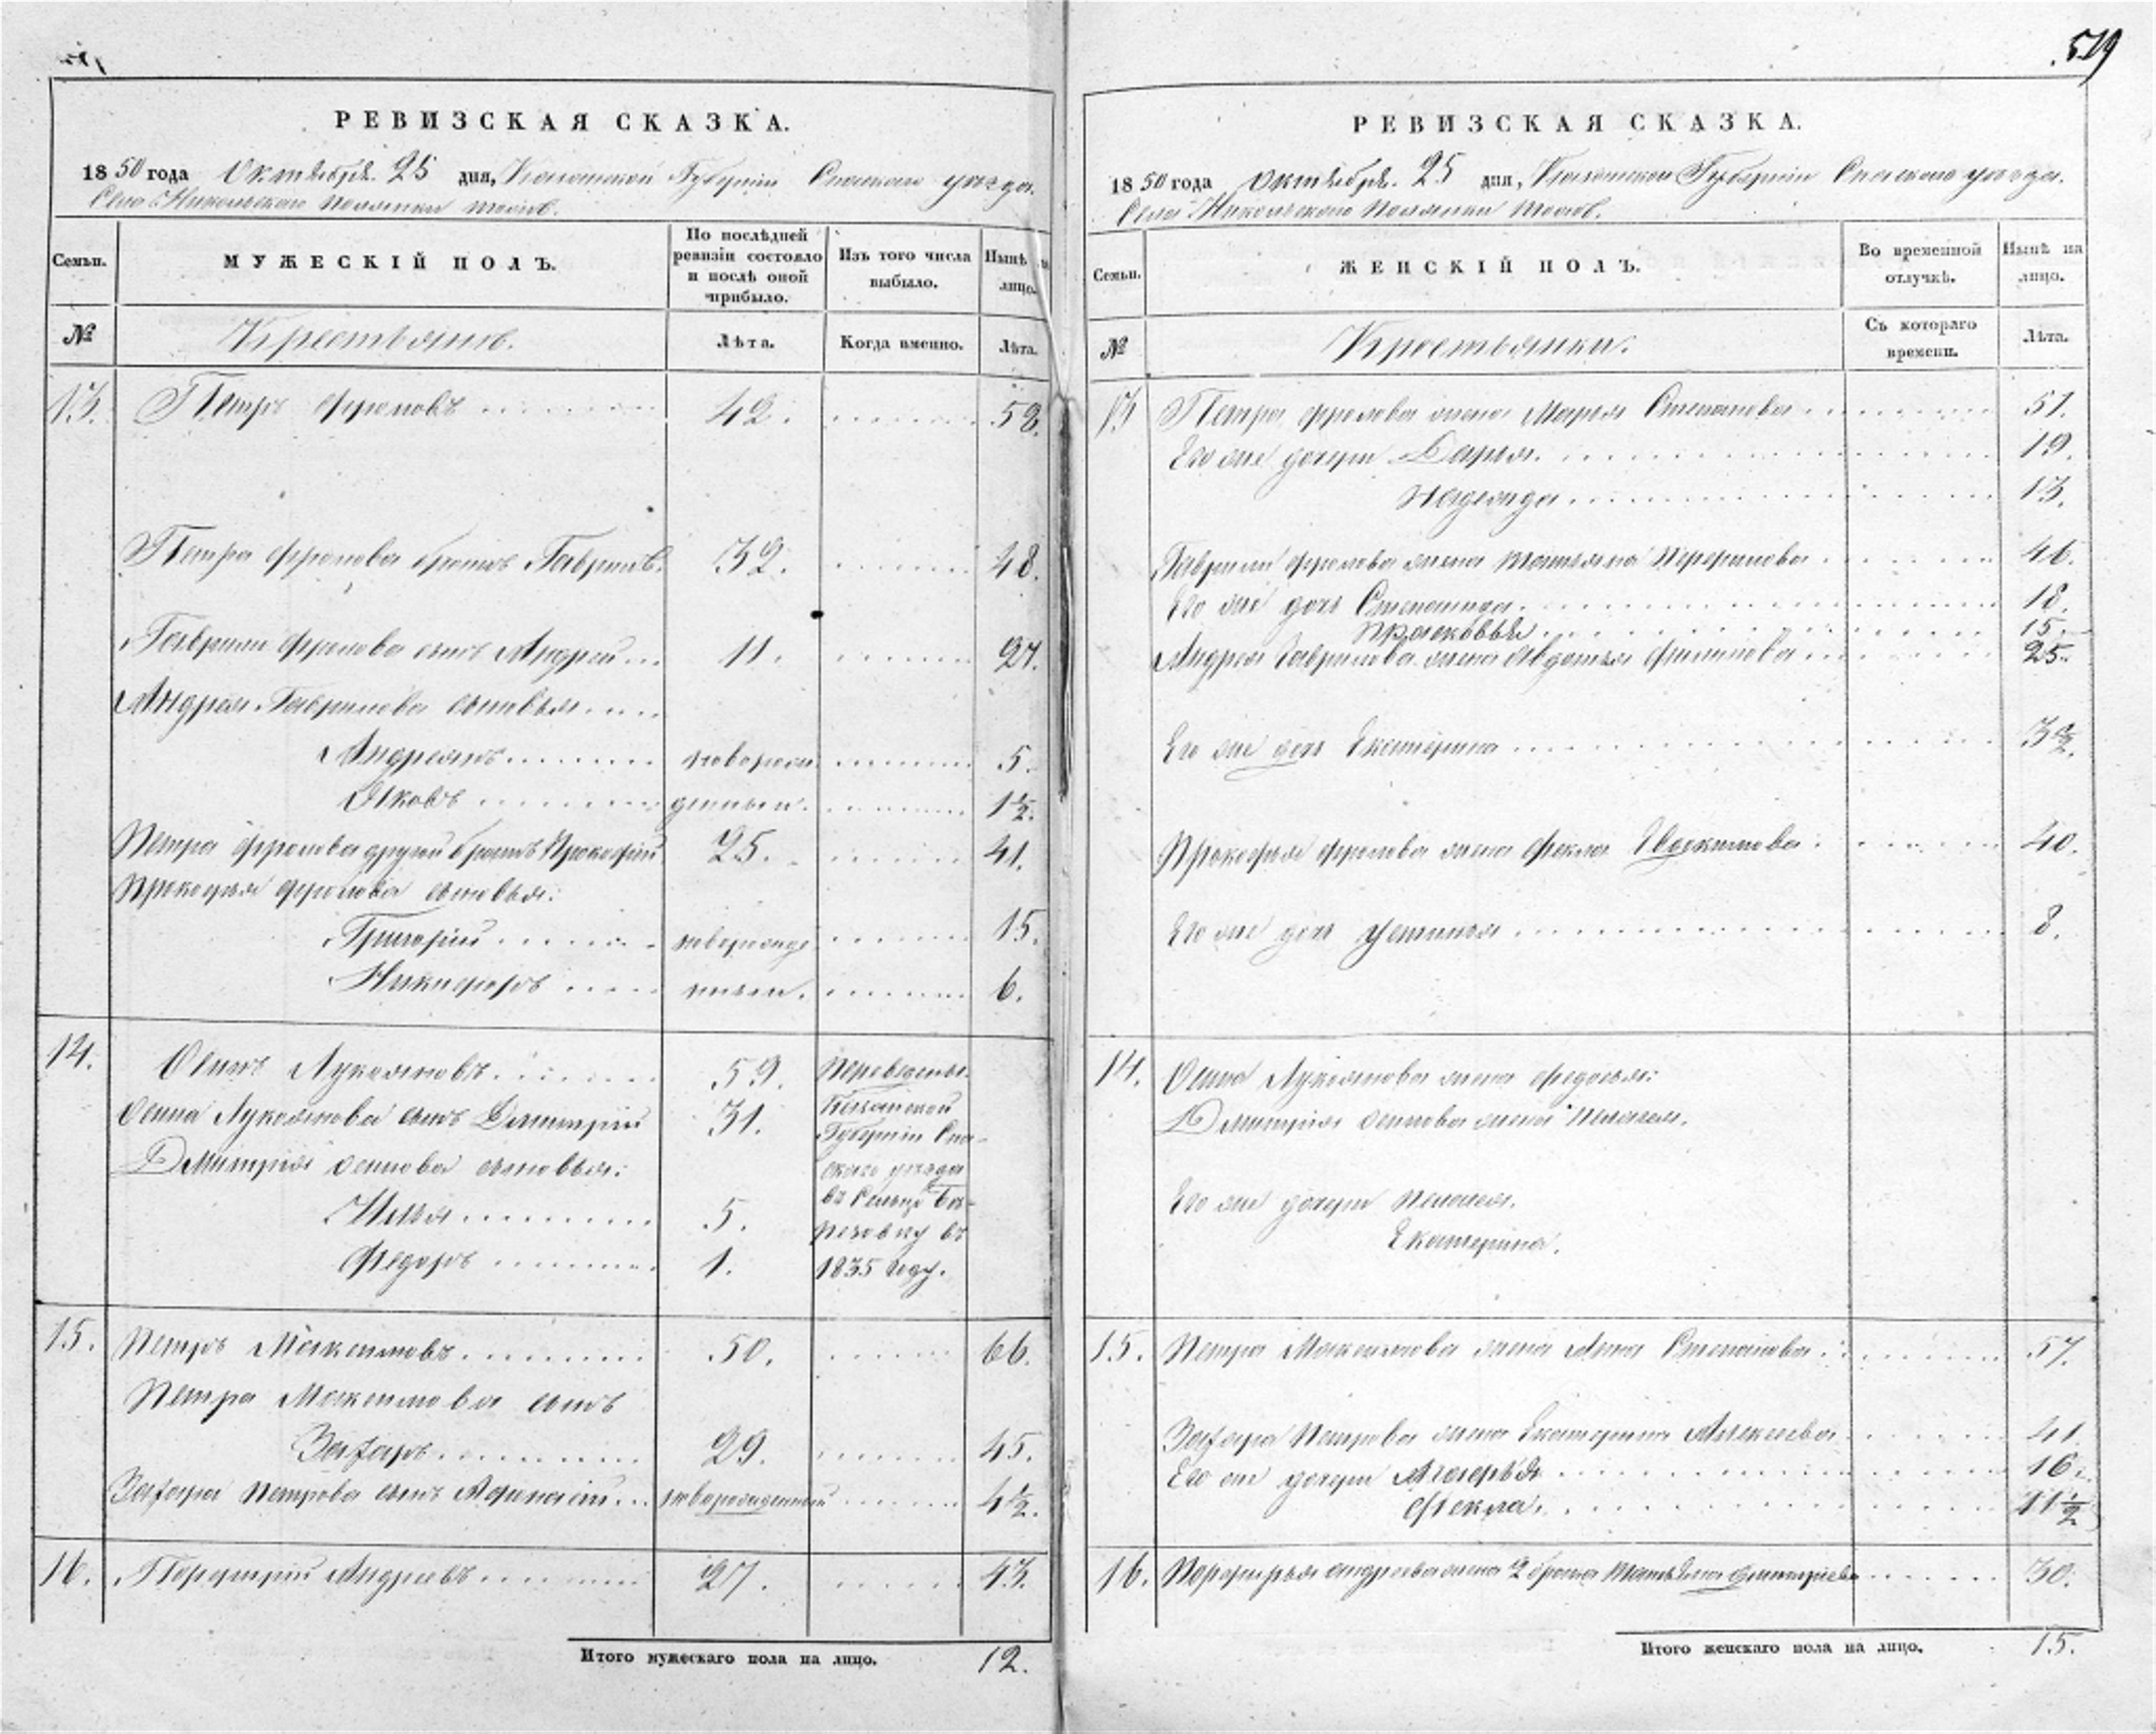 519
РЕВИЗСКАЯ СКАЗКА.
1850 года Октября 25 дня, Казанской Губернiи Спаскаго уѣзда
Села Никольскаго Полянки тожъ.
Семьи.
МУЖЕСКIЙ ПОЛЪ.
По послѣдней ревизiи состояло и послѣ оной прибыло.
Изъ того числа выбыло.
Нынѣ на лицо.
№
Крестьянъ.
Лѣта.
Когда именно.
Лѣта.
13. Петръ Фроловъ 42. 58.
Петра Фролова братъ Гаврилъ. 32. 48.
Гаврилы Фролова сынъ Андрей 11. 27.
Андрея Гаврилова сыновья
Андреянъ новорож 5.
Яковъ денныя. 1½.
Петра Фролова другой братъ Прокофiй 25. 41.
Прокофья Фролова сыновья:
Григорiй новорожде 15.
Никифоръ нныи. 6.
14. Осипъ Лукояновъ 59. Переведены
Осипа Лукоянова сынъ Дмитрiй 31. Казанской
Губернiи Спа-
Дмитрiя Осипова сыновья: скаго уѣзда
Илья 5. въ Сельцо Бе-
резовку въ
Федоръ 1. 1835 году.
15. Петръ Максимовъ 50. 66.
Петра Максимова сынъ
Захаръ 29. 45.
Захара Петрова сынъ Афонасiй новорожденный 4½.
16. Порфирiй Андреевъ 27. 43.
Итого мужескаго пола на лицо. 12.
РЕВИЗСКАЯ СКАЗКА.
1850 года Октября 25 дня, Казанской Губернiи Спаскаго уѣзда.
Села Никольскаго Полянки тожъ.
Семьи.
ЖЕНСКIЙ ПОЛЪ.
Во временной отлучкѣ.
Нынѣ на лицо.
№
Крестьянки.
Съ котораго времени.
Лѣта.
13 Петра Фролова жена Марья Степанова 51.
Его же дочери Дарья. 19.
Надежда 13.
Гаврилы Фролова жена Татьяна 46.
Его же дочь Степанида. 18.
Прасковья 15.
Андрея Гаврилова жена Авдотья Филипова 25.
Его же дочь Екатерина 3½.
Прокофья Фролова жена Фекла 40.
Его же дочь Устинья 8.
14. Осипа Лукоянова жена Федосья:
Дмитрия Осипова жена Пелагея.
Его же дочери Пелагея.
Екатерина.
15. Петра Максимова жена Анна Степанова 57.
Захара Петрова жена Екатерина Алексеева 41.
Его же дочери 16.
Фекла 11½
16. Порфирья Андреева жена 2 брака Татьяна Дмитриева 30.
Итого женскаго пола на лицо. 15.